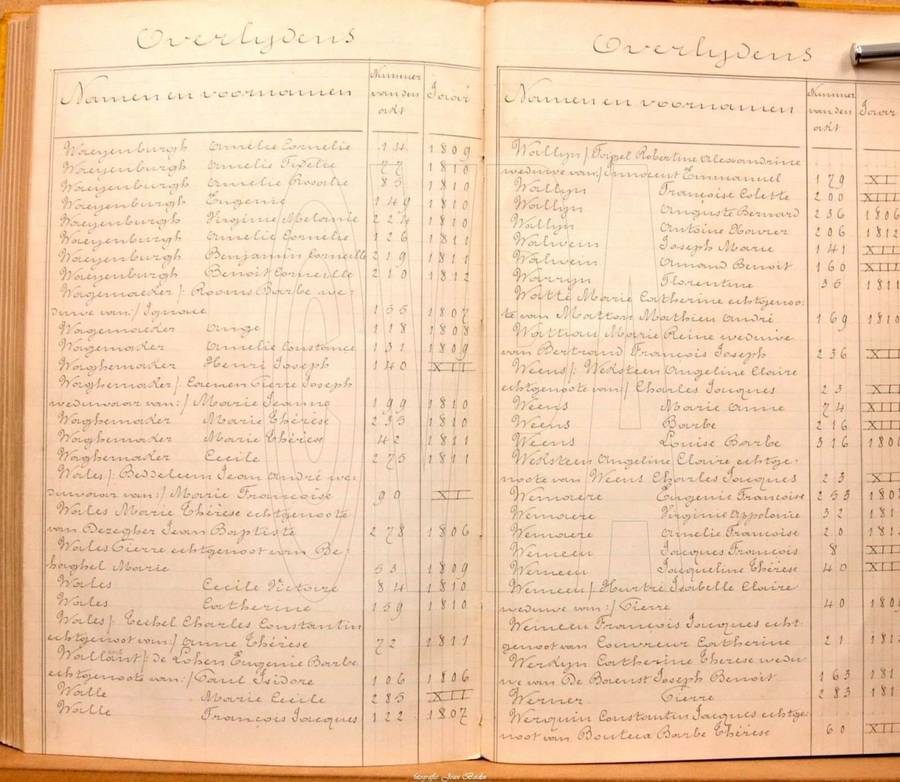 Overlydens
Namen en voornamen Nummer van den akt Jaar
Waeyenburgh Amelie Cornelie 134 1809
Waeyenburgh Amelie Fidelie 77 1810
Waeyenburgh Amelie Rosalie 85 1810
Waeyenburgh Eugenie 149 1810
Waeyenburgh Virginie Melanie 224 1810
Waeyenburgh Amelie Cornelie 126 1811
Waeyenburgh Benjamin Corneille 219 1811
Waeyenburgh Benoit Corneille 210 1812
Wagemaeker /: Rooms Barbe we-
duwe van:/ Ignace 155 1807
Wagemaeker Ange 118 1808
Wagemaker Amelie Constance 131 1809
Waghemaker Henri Joseph 140 XII
Waghemaker /: Pierre Joseph
weduwaar van:/ Marie Jeanne 199 1810
Waghemaker Marie Thérèse 235 1810
Waghemaker Marie Thérèse 42 1811
Waghemaker Cecile 275 1811
Wales /: Beddeleem Jean André we-
duwaar van:/ Marie Françoise 90 XII
Wales Marie Thérèse echtgenoote
van Dezegher Jean Baptiste 278 1806
Wales Pierre echtgenoot van De-
haghel Marie 53 1809
Wales Cecile Victoire 84 1810
Wales Catherine 159 1810
Wales /: Techel Charles Constantin
echtgenoot van:/ Anne Thérèse 72 1811
Wallant /: de Lohen Eugenie Barbe
echtgenoote van:/ Paul Isidore 106 1806
Walle Marie Cecile 285 XII
Walle François Jacques 122 1807
Overlydens
Namen en voornamen Nummer van den akt Jaar
Wallyn /: Robertine Alexandrine
weduwe van:/ Innocent Emmanuel 179 XII
Wallyn Françoise Colette 200 XIII
Wallyn Auguste Bernard 236 1806
Wallyn Antoine Xavier 206 1812
Walwein Joseph Marie 141 XII
Walwein Amand Benoit 160 XII
Warryn Florentine 35 1811
Watte Marie Catherine echtgenoo-
te van Matton Mathieu André 169 1810
Wattiau Marie Reine weduwe
van Bertrand François Joseph 236 XII
Weens /: Weksteen Angeline Claire
echtgenoote van:/ Charles Jacques 23 XII
Weens Marie Anne 74 XII
Weens Barbe 216 XII
Weens Louise Barbe 316
Weksteen Angeline Claire echtge-
noote van Weens Charles Jacques 23 XII
Wemaere Eugenie Françoise 253
Wemaere Virginie Appolonie 32
Wemaere Amelie Françoise 20
Wemeeu Jacques François 8 XII
Wemeeu Jacqueline Thérèse 40 XII
Wemeeu /: Hurtré Isabelle Claire
weduwe van:/ Pierre 40
Wemeeu François Jacques echt-
genoot van Couvreur Catherine 21
Werkyn Catherine Therese wedu-
we van De Baenst Joseph Benoit 163
Werner Pierre 283
Werquin Constantin Jacques echtge-
noot van Bouteca Barbe Thérèse 60 XII